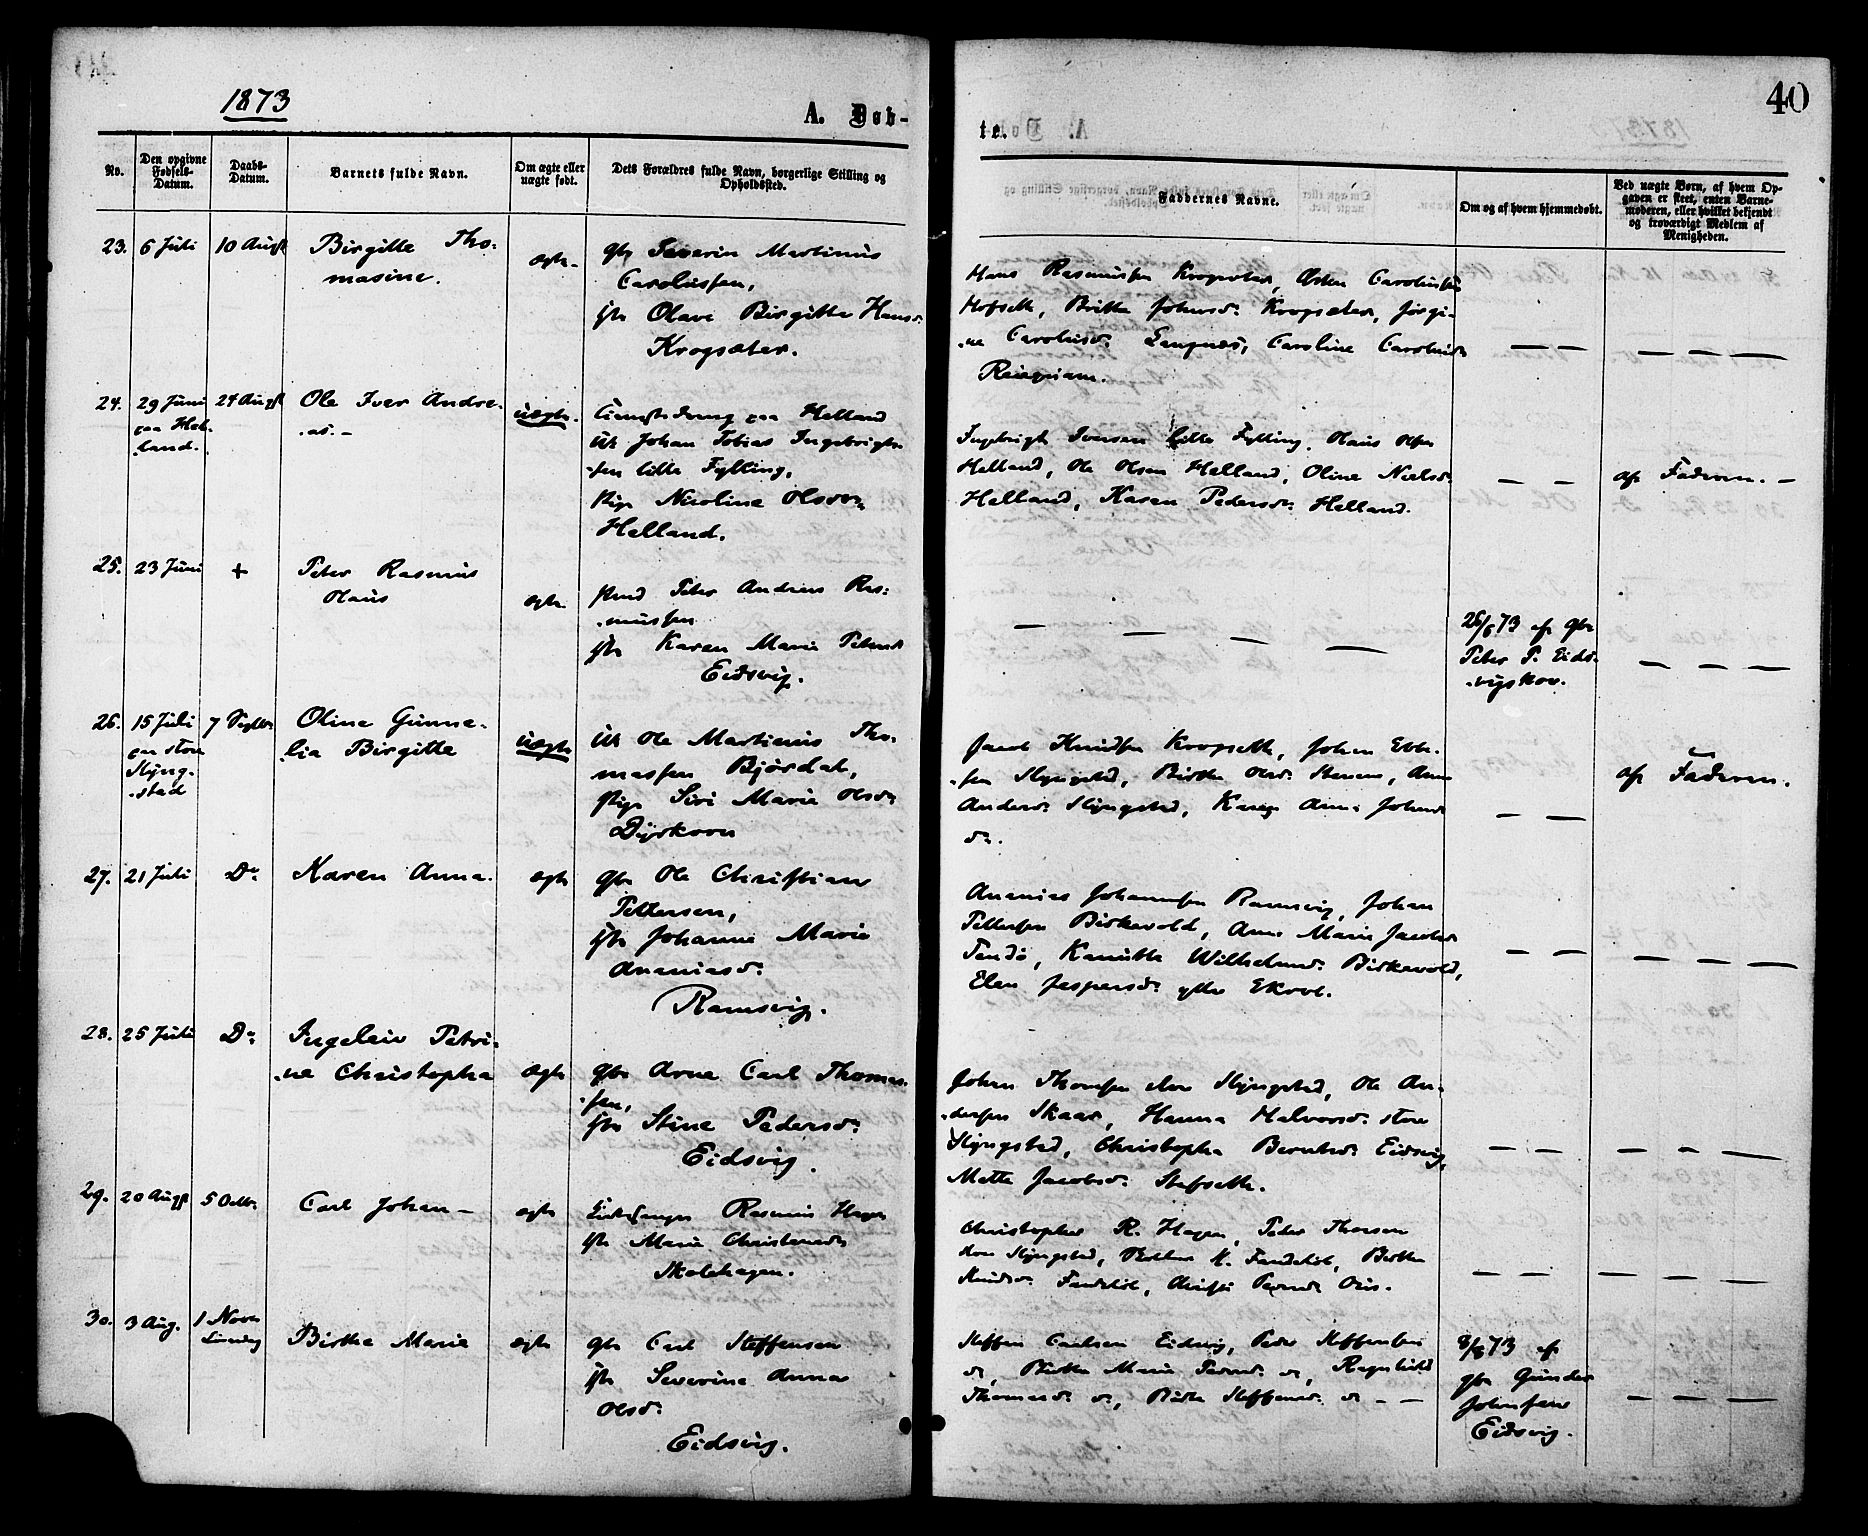 1873
A. Døb-
te.
40
No.
Den opgivne Fødsels-Datum.
Daabs-Datum.
Barnets fulde Navn.
Om ægte eller uægte født.
Dets Forældres fulde Navn, borgerlige Stilling og Opholdssted.
Faddernes Navne.
Om og af hvem hjemmedøbt.
Ved uægte Børn, af hvem Op-
gaven er skeet, enten Barne-
moderen, eller hvilket bekjendt
og troværdigt Medlem af
Menigheden.
23. 6 Juli 10 Augst Birgitte Tho-
masine.
ægte
gbr Severin Martinus
Carolussen,
Olave Birgitte Hansd.
Krogsæter.
Hans Rasmussen Krogsæter, Carolussen
Hofseth, Britte Johnsd. Krogsæter, Jørgi-
ne Carolusd. Langnes, Caroline Carolusd.
24. 29 Juni 24 Augst Ole Iver Andre-
paa Hel-
land.
as. -
uægte
paa Helland
Johan Tobias Ingebrigt-
sen lille Fylling,
Pige Nicoline Olsd.
Helland.
Ingebrigt Iversen lille Fylling, Olsen
Helland, Ole Olsen Helland, Oline Nielsd.
Helland, Karen Pedersd. Helland.
— — af Faderen. -
25. 23 Juni + Peter Rasmus
Olaus
ægte
Peter Andreas Ras-
mussen
Karen Marie Petersd.
Eidsvig.
— — — —
26/6 73 af gbr
Peter P. Eids-
vigskov.
— — —
26. 15 Juli 7 Septbr Oline Gunne-
lia Birgitte
paa store
Slyng-
stad
uægte
Ole Martinus Tho-
massen Bjørdal,
Pige Siri Marie Olsd.
Dyrkorn
Jacob Knudsen Krogseth, Johan Ebbe-
sen Slyngstad, Birthe Olsd. Stenene, Ane
Andersd. Slyngstad, Karen Anna Johansd.
do.
— — af Faderen.
27. 21 Juli Do Karen Anna.
ægte
gbr Ole Christian
Pettersen,
Johanne Marie
Ananiasd.
Ramsvig.
Ananias Johannesen Ramsvig, Johan
Pettersen Birkevold, Ane Marie Jacobsd.
Tandø, Kanutte Wilhelmsd. Birkevold,
Elen Jespersd. ytre Ekrol.
— — — — —
28. 25 Juli Do Ingeleiv Petri-
ne Christopha
ægte
gbr Arne Carl Thomas-
sen,
Stine Pedersd.
Eidsvig.
Johan Thomsen store Slyngstad, Ole An-
dersen Skaar, Hanna Halvorsd. store
Slyngstad, Christopha Berntsd. Eidsvig,
Mette Jacobsd. Stafseth.
— — — — —
29. 20 Augst 5 Octbr. Carl Johan —
ægte
Rasmus Hagen
Marie Christensd.
Skolehagen.
Christopher R. Hagen, Peter Thorsen
store Slyngstad,
— — — — —
30. 3 Aug. 1 Novbr Birthe Marie
ægte
gbr Carl Steffensen
Severine Anna
Olsd.
Eidsvig.
Steffen Carlsen Eidsvig, Peder Steffensen
do, Birthe Marie Pedersd. do, Ragnhild
Thomasd. do, Birthe Steffensd. do — —
8/8 73 af
gbr Gunder
Johnsen
Eidsvig.
— — —